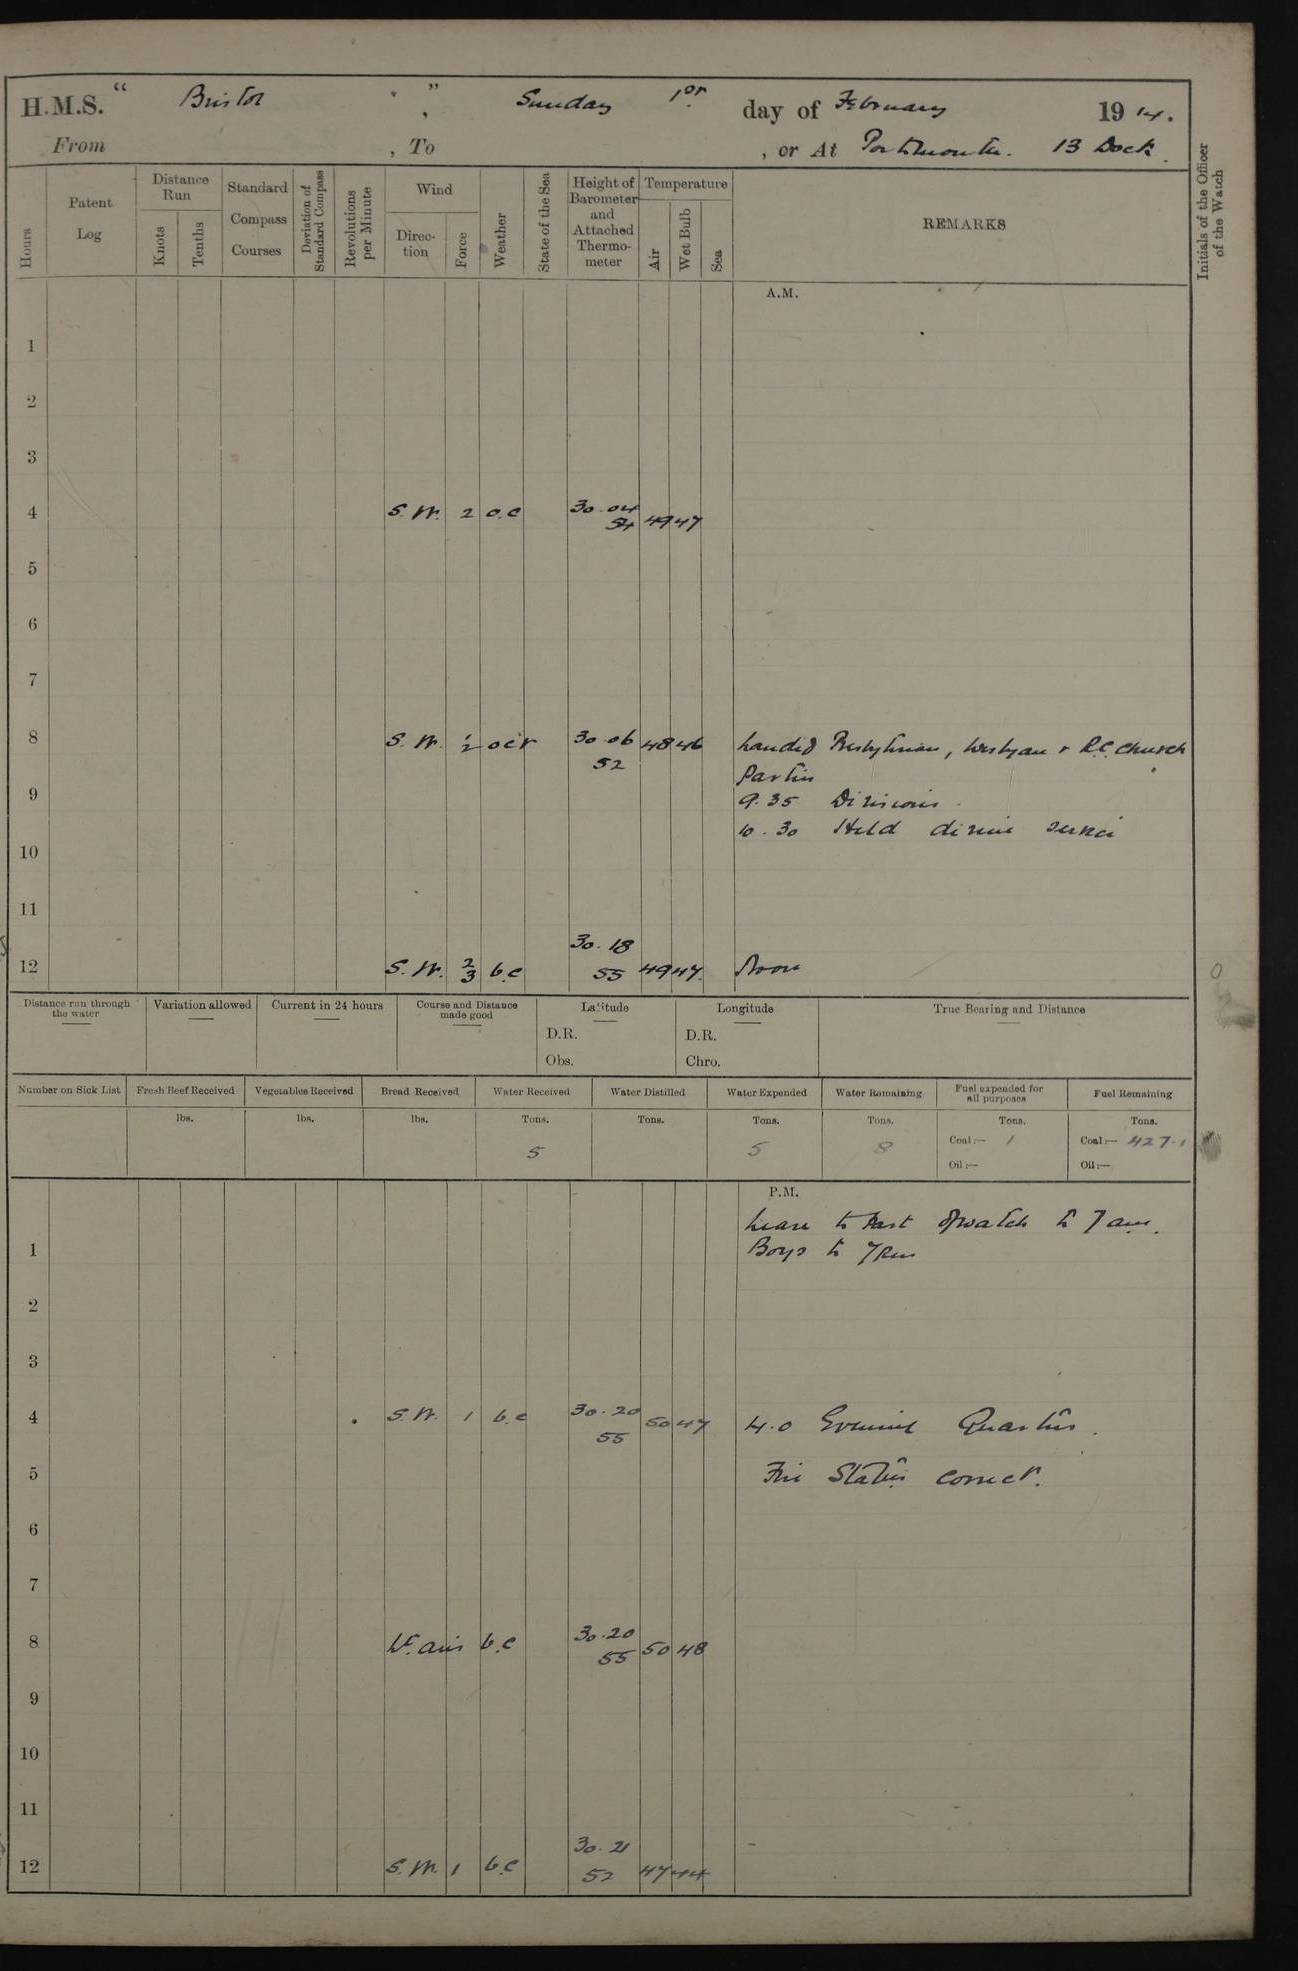 H.M.S. “ Bristol ” , Sunday 1st day of February 1914.
From , To , or At Portsmouth. 13 Dock.
Hours
Patent Log
Distance Run
Knots
Tenths
Standard Compass Courses
Deviation of Standard Compass
Revolutions per Minute
Wind
Direc-tion
Force
Weather
State of the Sea
Height of Barometer and Attached Thermo-meter
Temperature
Air
Wet Bulb
Sea
REMARKS
Initials of the Officer of the Watch
A.M.
1
2
3
4 S.W. 2 o.c 30.04 54 49 47
5
6
7
8 S.W. 1/2 ocr 30.06 52 48 46 Landed Presbyterian, Wesleyan & R.C. Church
Parties
9 9.35 Divisions.
10.30 Held divine service
10
11
12 S.W. 2/3 b.c 30.18 55 49 47. Noon
Distance run through the water
Variation allowed
Current in 24 hours
Course and Distance made good
Latitude
D.R.
Obs.
Longitude
D.R.
Chro.
True Bearing and Distance
Number on Sick List
Fresh Beef Received lbs.
Vegetables Received lbs.
Bread Received lbs.
Water Received Tons. 5
Water Distilled Tons.
Water Expended Tons. 5
Water Remaining Tons. 8
Fuel expended for all purposes Tons.
Coal:— 1
Oil:—
Fuel Remaining Tons.
Coal:— 427.1
Oil:—
P.M.
Leave to Part of watch to 7 am.
1 Boys to 7 pm
2
3
4 S.W. 1 b.c 30.20 55 50 47 4.0 Evening Quarters.
5 Fire Stations correct.
6
7
8 Lt. airs b.c 30.20 55 50 48
9
10
11
12 S.W. 1 b.c 30.21 52 47 44